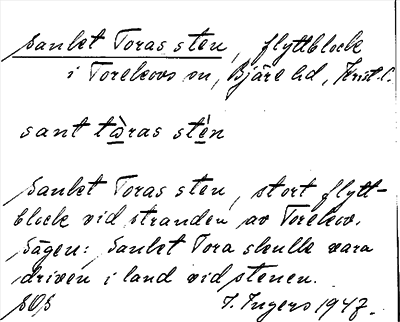 Sankt Toras sten, flyttblock
i Torekovs sn, Bjäre hd, Krist. l.
sant tɷ̀ras stén
Sankt Toras sten, stort flytt-
block vid stranden av Torekov.
Sägen: Sankt Tora skulle vara
driven i land vid stenen.
SOS J. Ingers 1947.